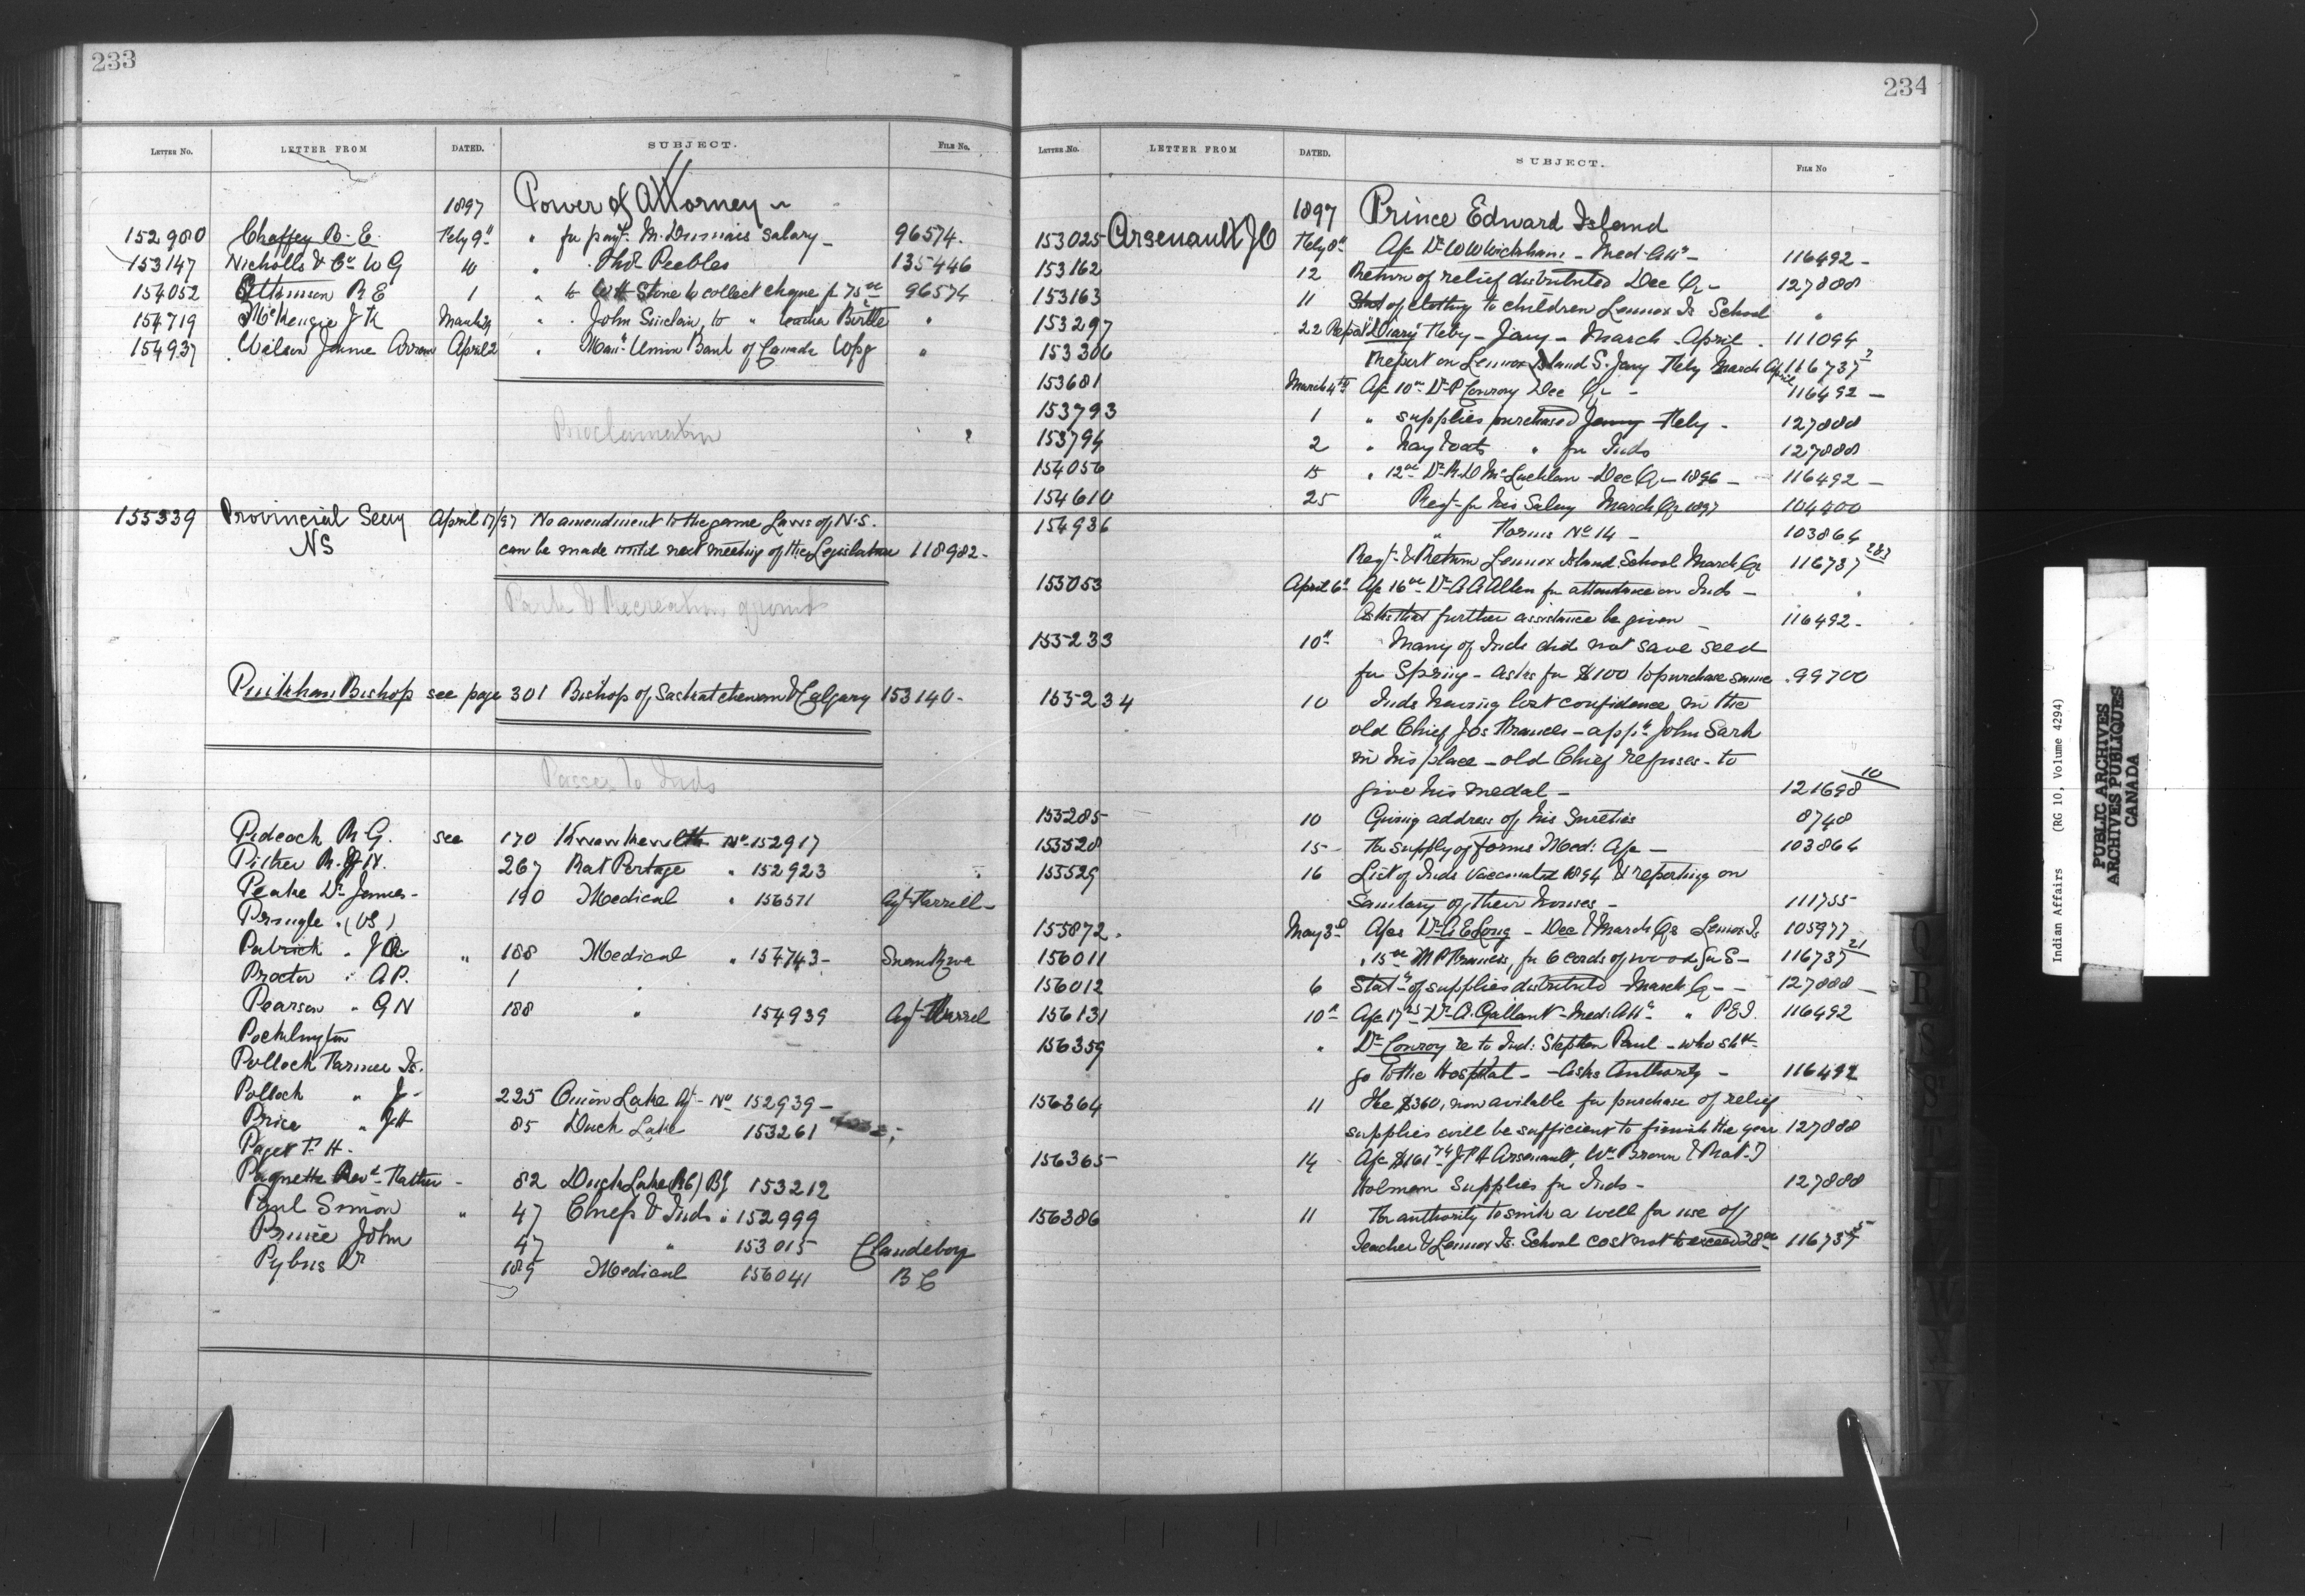 233
LETTER NO. LETTER FROM DATED. SUBJECT. FILE No.
1897 Power of Attorney
152980 Chaffey B. E. Feby 9" " for paymt. M. Dumais salary 96574.
153147 Nicholls & Co W G 10 " Thos Peebles 135446
154052 Atkinson R E 1 " to W H Stone to collect cheque fr 75.00 96574
154719 McKenzie J K March 29 " John Sinclair, to " teacher Birtle "
154937 Wilson Jonne April 2 " Manr Union Bank of Canada Wpg "
Proclamation
155339 Provincial Secy April 17/97 No amendment to the game Laws of N.S.
NS can be made until next meeting of the Legislature 118982-
Park & Recreation ground
Pinkham Bishop see page 301 Bishop of Saskatchewan & Calgary 153140-
Passes to Inds
Pideock R. G. see 170 Kwawkewlth No 152917
Pither R. J. N. 267 Rat Portage " 152923
Peake Dr James- 190 Medical " 156511
Pringle " (VS)
Patrick " J R " 188 Medical " 154743-
Proctor " A P. 1 "
Pearson " G N 188 " 154939
Pocklington
Pollock Farmer Is.
Pollock " J- 225 Onion Lake Ag- No 152939-
Price " J H 85 Duck Lake 153261
Paget F. H-
Paquette Revd Father - 82 Duck Lake (RC) BS 153212
Paul Simon " 47 Chiefs & Inds " 152999
Prince John 47 " 153015 Clandeboy
Pybus Dr 189 Medical 156041 B C
234
LETTER NO. LETTER FROM DATED. SUBJECT. FILE No
1897 Prince Edward Island
153025 Arsenault J O Feby 8" A/c Dr W W Wickham - Med. Attc - 116492-
153162 12 Return of relief distributed Dec Qr - 127888
153163 11 Stat of clothing to children Lennox Is School "
153297 22 Report "Diary" Feby - Jany - March - April. 111094
153306 Report on Lennox Island S. Jany Feby March April 116737 2
153681 March 4th A/c 10.00 Dr P Conroy Dec Qr - 116492-
153793 1 " supplies purchased Jany Feby - 127888
153794 2 " hay & oats " for Inds 127888
154056 15 " 12.00 Dr R. D McLachlan - Dec Qr - 1896 - 116492-
154610 25 Reqt for his Salary March Qr 1897 104400
154936 " Forms No 14 - 103864
Reqt & Return Lennox Island School March Qr 116737
153053 April 6" A/c 16.00 Dr A A Allen for attendance on Inds -
Asks that further assistance be given - 116492-
155233 10" Many of Inds did not save seed
for Spring - asks for $100 to purchase same. 99700
155234 10 Inds having lost confidence in the
old Chief Jos Francis - appt John Sark
in his place - old Chief refuses - to
give his medal - 121698 10
155285 10 Giving address of his sureties 8748
155528 15- For supply of Forms Med: A/c - 103864
155529 16 List of Inds Vaccinated 1894 & reporting on
Sanitary of their houses - 111755
155872. May 3d A/cs Dr A E Long - Dec & March Qs Lennox Is 105977
156011 " 15.00 M P Francis, for 6 cords of wood for S- 116737 21
156012 6 Statt of supplies distributed March Q - - 127888-
156131 10" A/c 17 Dr A. Gallant - Med: Attc " P E I. 116492
156359 " Dr Conroy re to Ind: Stephen Paul - who shd
go to the Hospital - Asks Authority - 116492
156364 11 The $360, now avilable for purchase of relief
supplies will be sufficient to finish the year 127888
156365 14 A/c $161 J P H Arsenault, Wm Brown & Mat. I
Holman supplies for Inds - 127888
156386 11 For authority to sink a well for use of
Teacher & Lennox Is. School cost not to exceed 28.00 116737 5
Indian Affairs (RG 10, Volume 4294)
PUBLIC ARCHIVES
ARCHIVES PUBLIQUES
CANADA